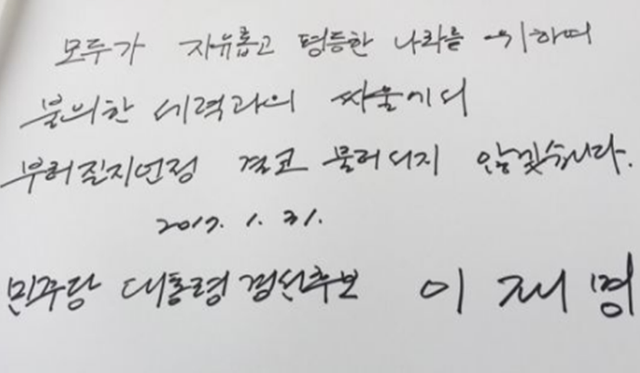 모두가 자유롭고 평등한 나라를 위하여
불의한 세력과의 싸움에서
부러질지언정 결코 물러서지 않겠습니다.
2017. 1. 31.
민주당 대통령 경선후보 이재명